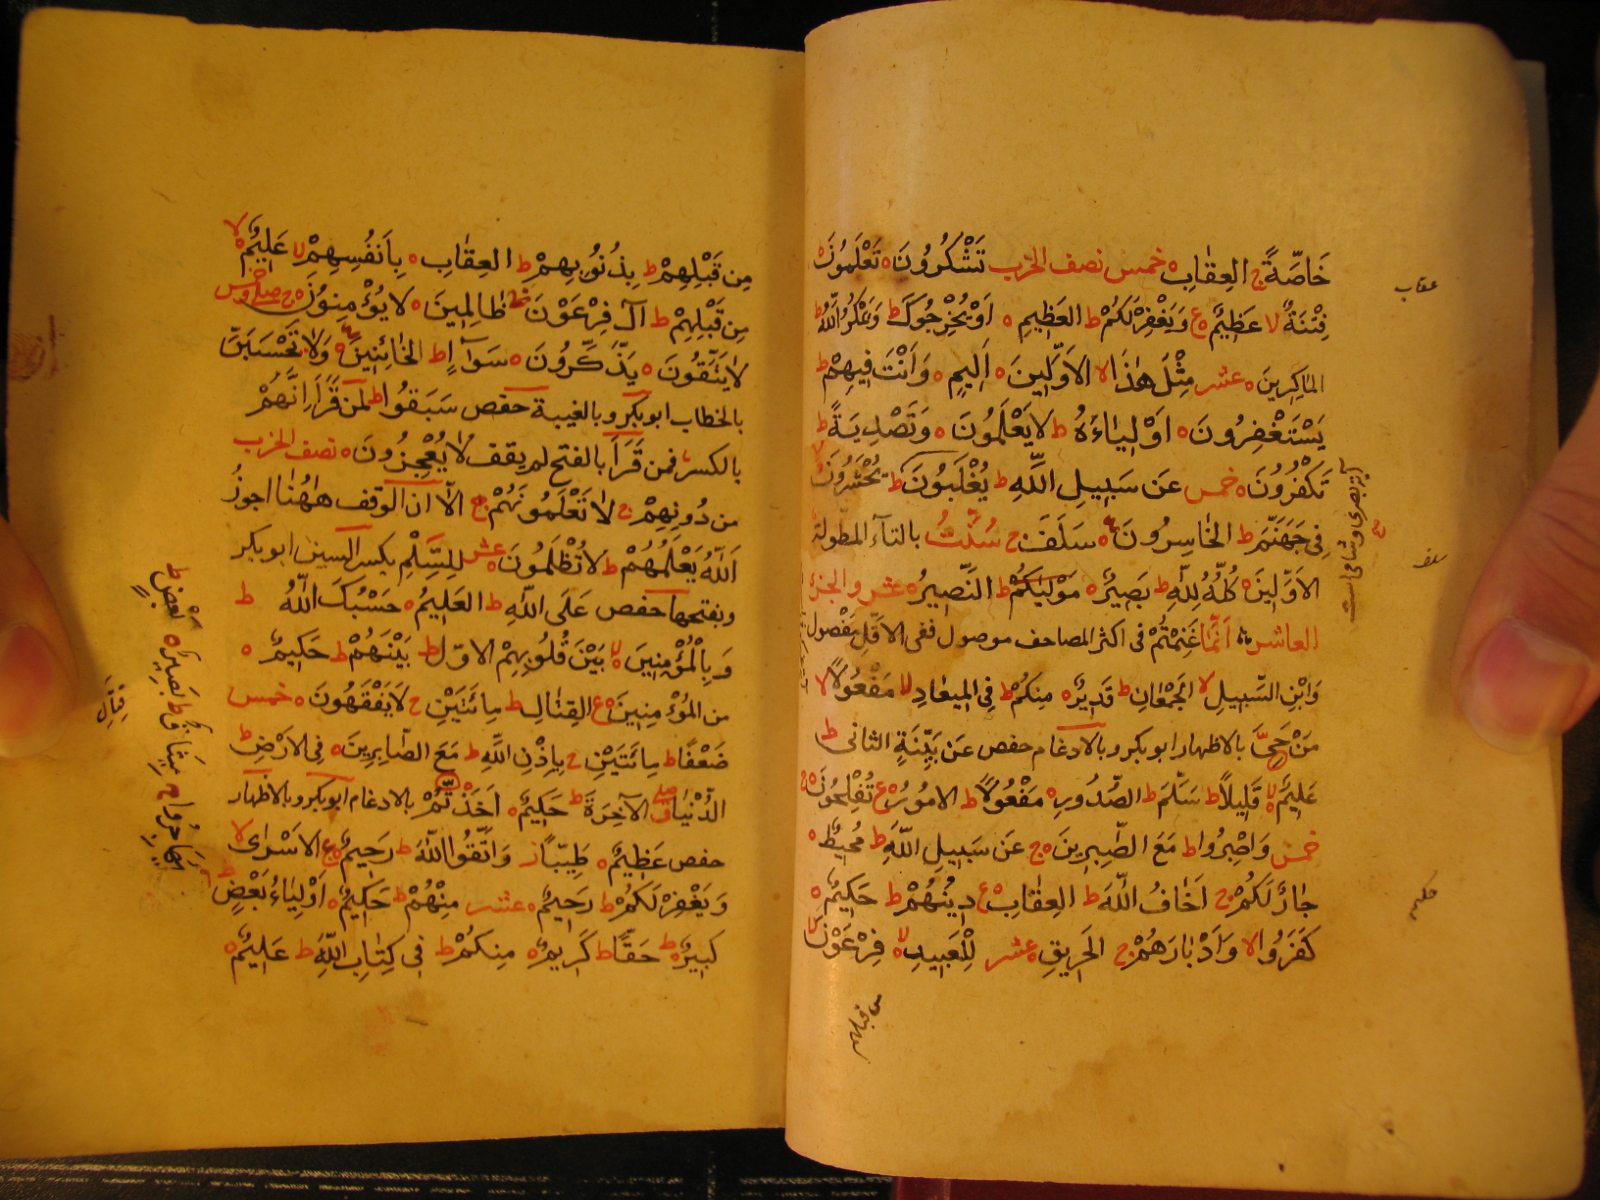 خَاصَّةً ج العِقٰابِ ه خمس نصف الحزب تَشْكُرُونَ ه تَعْلَمُونَ ه
فِتْنَةٌ لا عَظِيمٌ ه ع وَيَغْفِرْ لَكُمْ ط العَظِيمِ ه اَوْ يُخْرِجُوكَ ط وَيَمْكُرُ اللّٰهُ ط
المٰاكِرِينَ ه عشر مِثْلَ هٰذَا لا الاَوَّلِينَ ه اَلِيمٍ ه وَاَنْتَ فِيهِمْ ط
يَسْتَغْفِرُونَ ه اَوْلِيٰاءَهُ ط لايَعْلَمُونَ ه وَتَصْدِيَةً ط
تَكْفُرُونَ ه خمس عَن سَبِيلِ اللّٰهِ ط يُغْلَبُونَ ط تُحْشَرُونَ لا
فِى جَهَنَّمَ ط الخٰاسِرُونَ ه ع سَلَفَ ج سُنَّتُ بالتآء المطولة
الاَوَّلِينَ ه كُلُّهُ لِلّٰهِ ج بَصِيرٌ ه مَوْلٰيكُمْ ط النَّصِيرُ ه عشر والجزء
العاشر اَنَّمٰا غَنِمْتُمْ فى اكثر المصاحف موصول ففى الاقلّ مَفْصُول
وَابْنِ السَّبِيلِ لا الجَمْعٰانِ ط قَدِيرٌ ه مِنكُمْ ط فِى المِيعٰادِ لا مَفْعُولاً لا
مَنْ حَىَّ بالاظهار ابو بكر وبالادغام حفص عَن بَيِّنَةٍ الثانى ط
عَلِيمٌ لا قَلِيلاً ط سَلَّمَ ط الصُّدُورِ ه مَفْعُولاً ط الامُورُ ه ع تُفْلِحُونَ ه ج
خمس وَاصْبِرُوا ط مَعَ الصّٰبِرِينَ ه ج عَن سَبِيلِ اللّٰهِ ط مُحِيطٌ ه
جٰارٌ لَكُمْ ج اَخٰافُ اللّٰهَ ط العِقٰابِ ه ع دِينُهُمْ ط حَكِيمٌ ه
كَفَرُوا لا وَاَدْبٰارَهُمْ ج الحَرِيقِ ه عشر لِلْعَبِيدِ ه لا فِرْعَوْنَ لا
عقاب
آية بصرى وشامى
سلف
حكيم
من قبلهم
مِن قَبْلِهِمْ ط بِذُنُوبِهِمْ ط العِقٰابِ ه بِاَنفُسِهِمْ لا عَلِيمٌ ه لا
مِن قَبْلِهِمْ ط آلَ فِرْعَوْنَ ج ظٰالِمِينَ ه لايُؤْمِنُونَ ه ج
لايَتَّقُونَ ه يَذَّكَّرُونَ ه سَوَآءٍ ط الخٰائِنِينَ ه ع وَلا تَحْسَبَنَّ
بالخطاب ابو بكر وبالغيبة حفص سَبَقُوا ط لمن قَرَأَ اِنَّهُمْ
بالكسر فمن قَرَأَ بالفتح لم يقف لايُعْجِزُونَ ه نصف الحزب
من دُونِهِمْ ج لاٰ تَعْلَمُونَهُمْ ج الاّ ان الوقف هٰهُنٰا اجوزُ
اَللّٰهُ يَعْلَمُهُمْ ط لاتُظْلَمُونَ ه عشر لِلسِّلْمِ بكسر السين ابو بكر
وبفتحها حفص عَلَى اللّٰهِ ط العَلِيمُ ه حَسْبُكَ اللّٰهُ ط
وَبِالْمُؤْمِنِينَ ه لا بَيْنَ قُلُوبِهِمْ الاوّل ط بَيْنَهُمْ ط حَكِيمٌ ه
من المُؤْمِنِينَ ه ع القِتٰالِ ط مِائَتَيْنِ ج لايَفْقَهُونَ ه خمس
ضَعْفًا ط مِائَتَيْنِ ج بِاِذْنِ اللّٰهِ ط مَعَ الصّٰابِرِينَ ه فِى الاَرْضِ ط
الدُّنْيٰا الآخِرَةَ ط حَكِيمٌ ه اَخَذْتُمْ بالادغام ابو بكر وبالاظهار
حفص عَظِيمٌ ه طَيِّبًا ز وَاتَّقُوا اللّٰهَ ط رَحِيمٌ ه ع الاَسْرٰى لا
وَيَغْفِرْ لَكُمْ ط رَحِيمٌ ه عشر مِنْهُمْ ط حَكِيمٌ ه اَوْلِيٰاءُ بَعْضٍ ط
كَبِيرٌ ه ط حَقًّا ط كَرِيمٌ ه مِنكُمْ ط فِى كِتٰابِ اللّٰهِ ط عَلِيمٌ ه
يُهٰاجِرُوا ج مِيثٰاقٌ ط بَصِيرٌ ه بَعْضٍ ط
قِتٰالِ